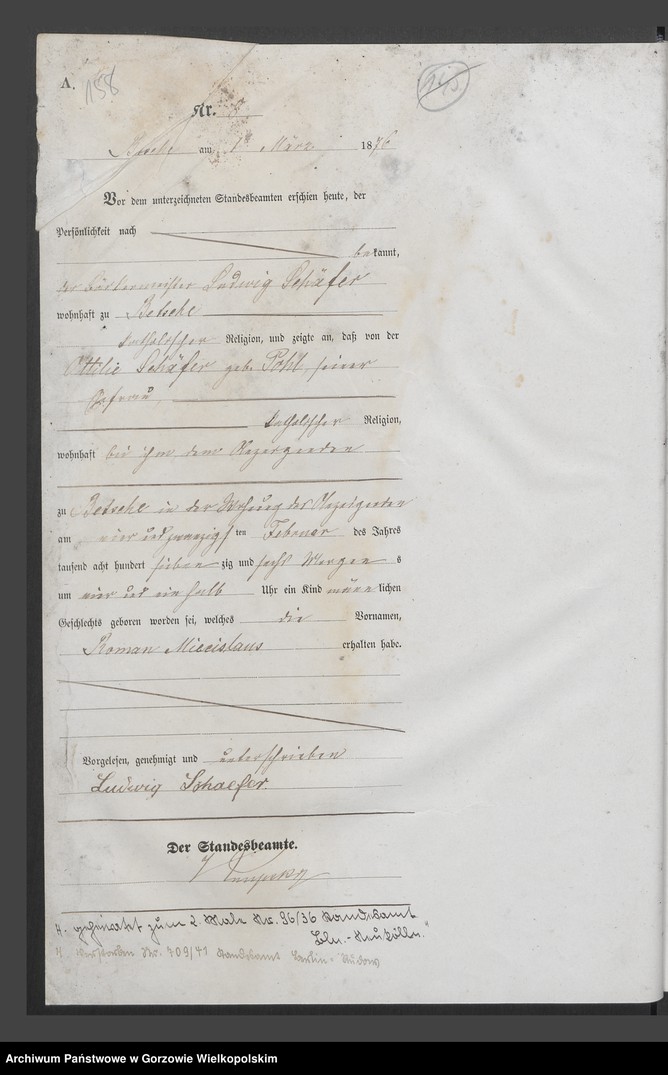 A.
158
Nr.
Betsche am 1ten März 1876
Vor dem unterzeichneten Standesbeamten erschien heute, der
Persönlichkeit nach
bekannt,
der Ludwig Schäfer
wohnhaft zu Betsche
katholischer Religion, und zeigte an, daß von der
Ottilie Schäfer geb. Pohl, seiner
Ehefrau
katholischer Religion,
wohnhaft bei ihm, dem Anzeigenden
zu Betsche in der Wohnung des Anzeigenden
am vier und zwanzigsten Februar des Jahres
tausend acht hundert sieben zig und sechs Morgens
um vier und ein halb Uhr ein Kind männlichen
Geschlechts geboren worden sei, welches die Vornamen,
Roman Miecislaus erhalten habe.
Vorgelesen, genehmigt und unterschrieben
Ludwig Schaefer
Der Standesbeamte.
H. geheiratet zum 2 Male Nr. 96/36 Standesamt
Bln.-Neukölln.
Verstorben Nr. 709/41 Standesamt Berlin-Rudow
Archiwum Państwowe w Gorzowie Wielkopolskim